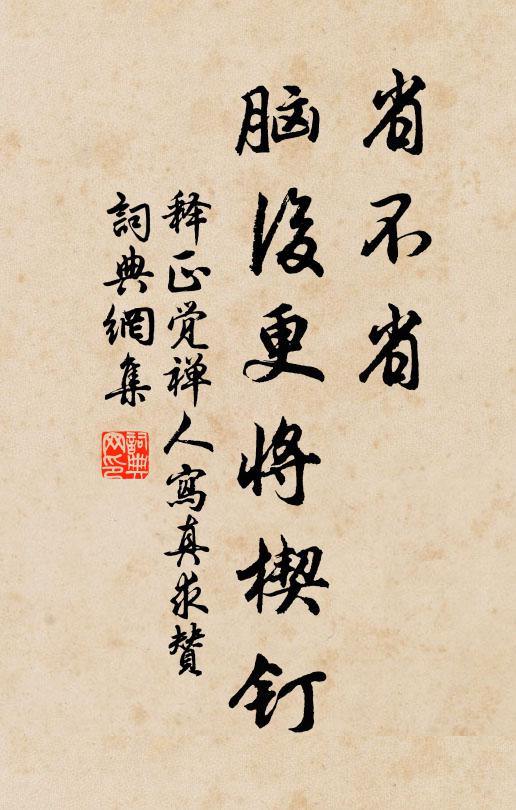 省不省
脑後更将楔钉
释正觉禅人寫真求赞
詞典網集
詞典网印